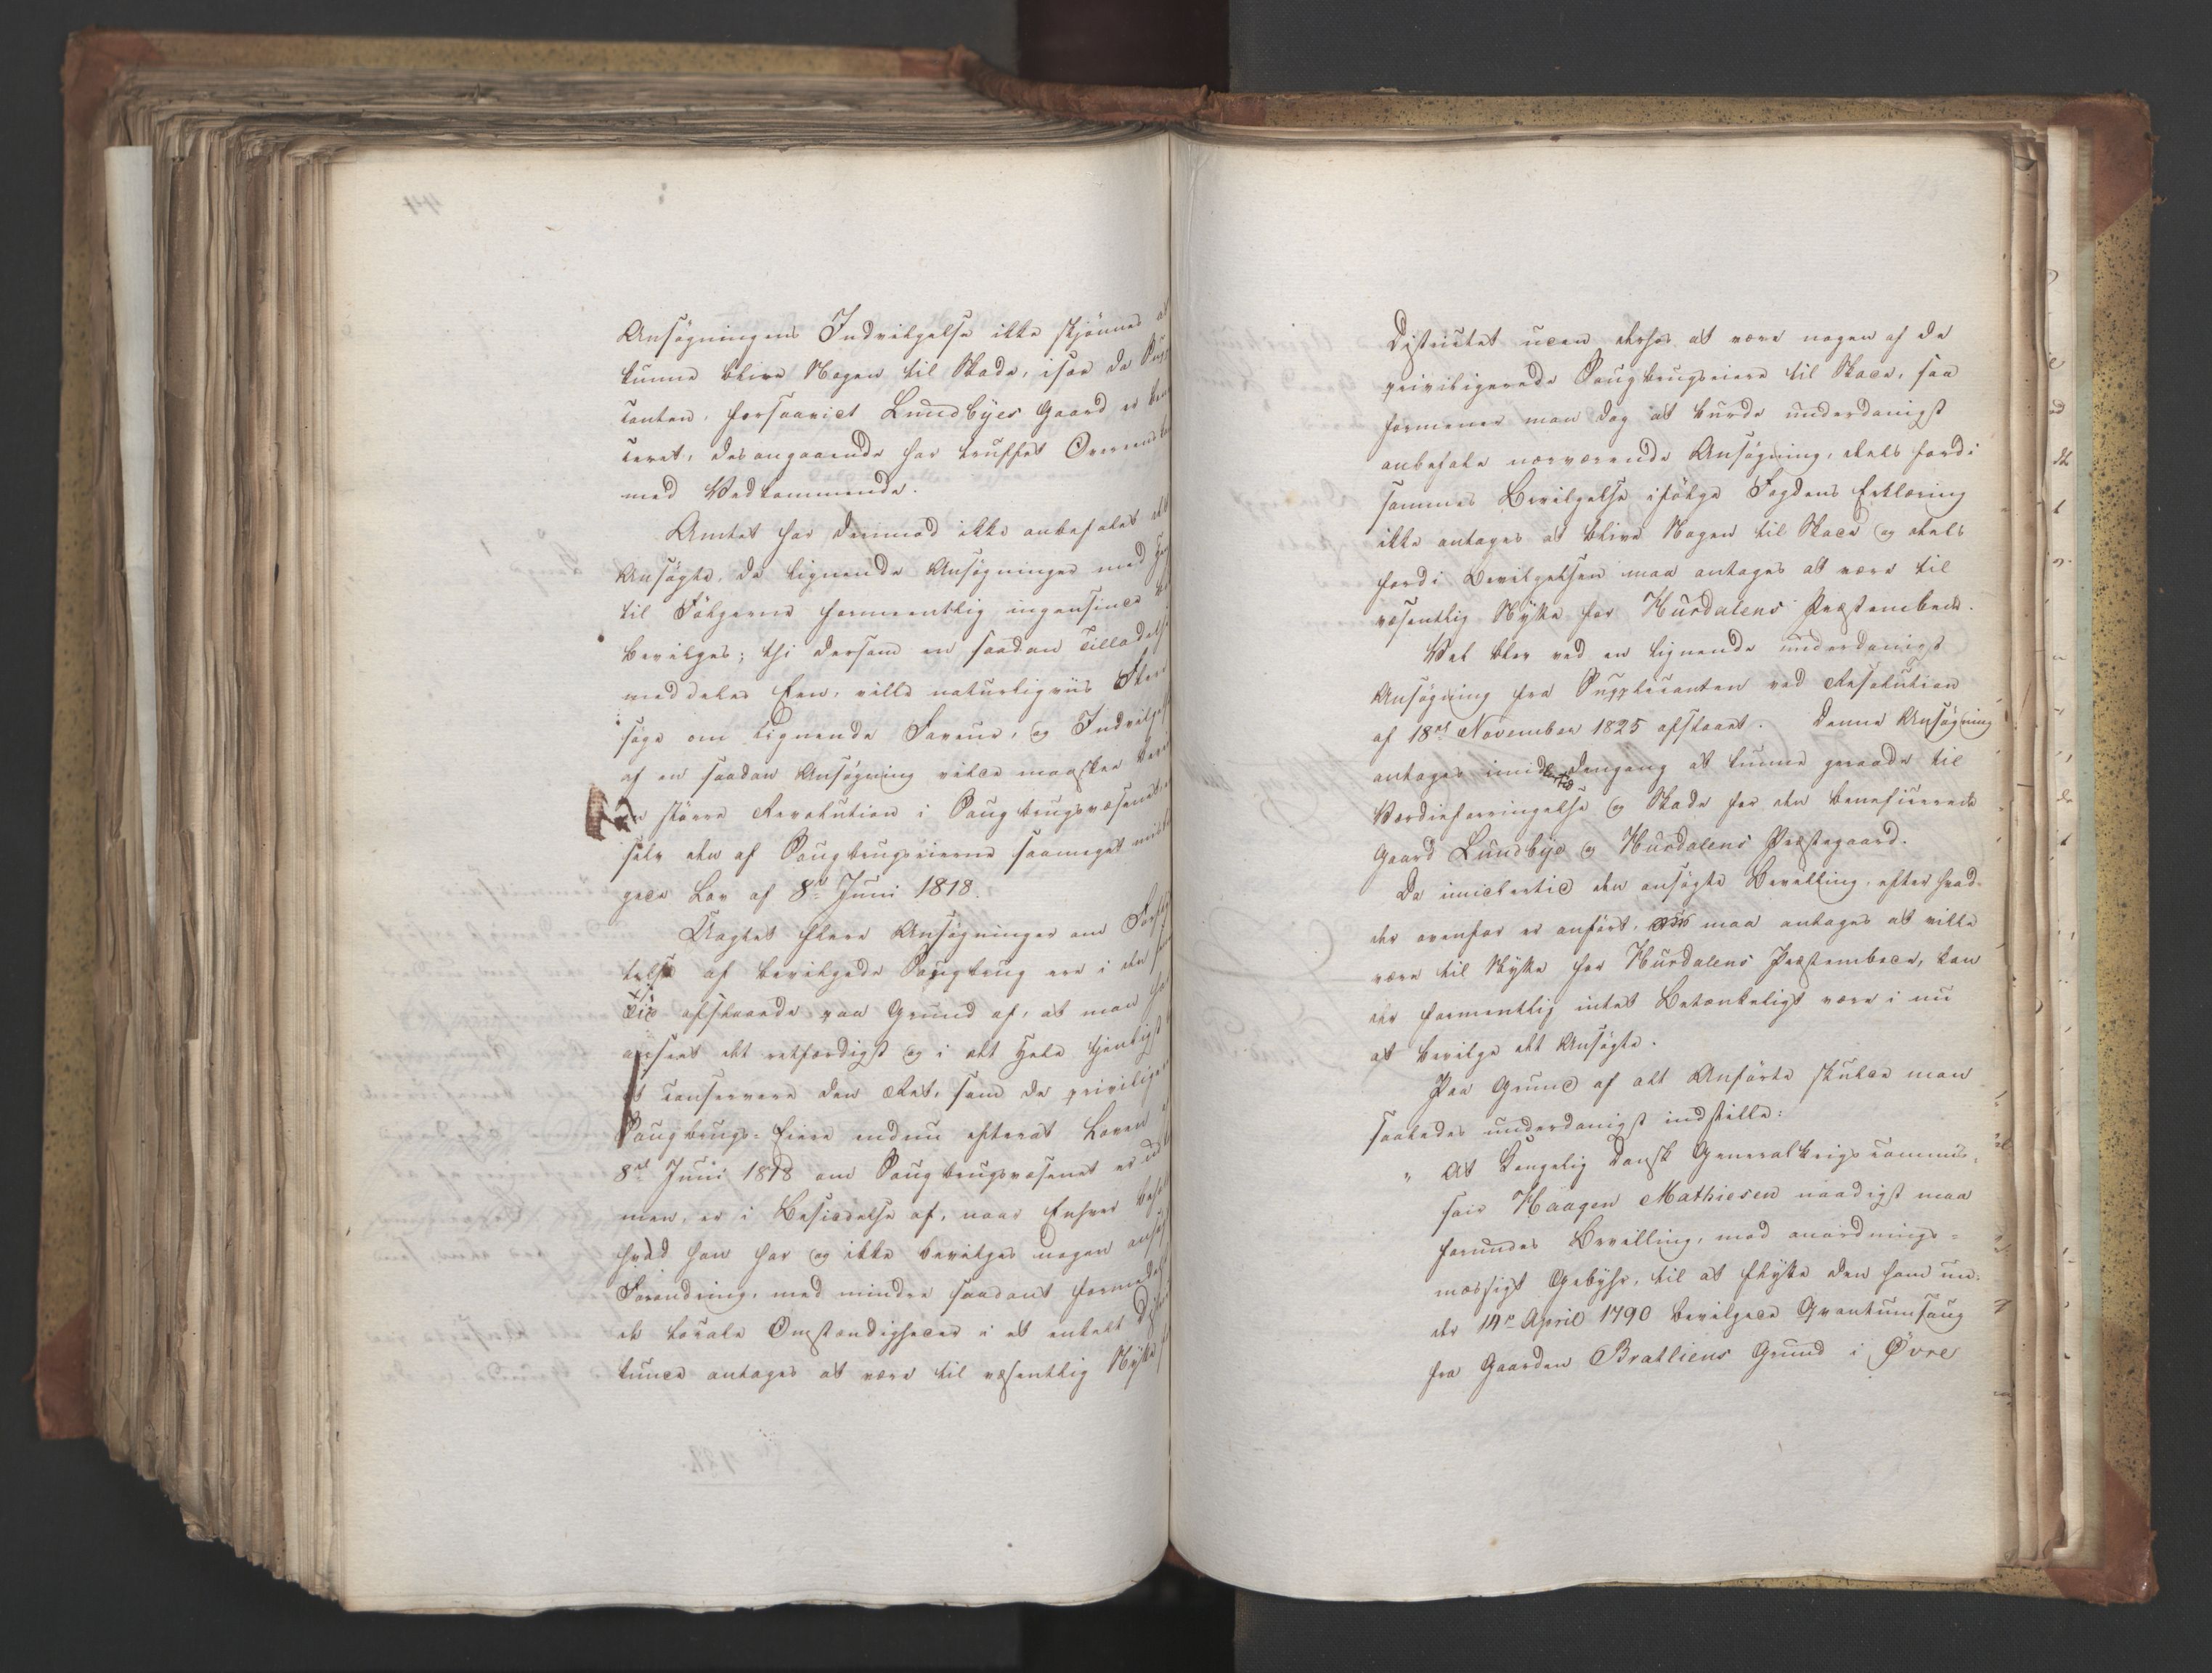 Ansøgningens Indvilgelse ikke skjønnes at
kunne blive Nogen til Skade, især da Supp
canten, forsaavidt Lundbyes Gaard er
ceret, desangaaende har truffet Overeens
med Vedkommende.
Amtet har derimod ikke anbefalet det
Ansøgte, da lignende Ansøgninger med
til Følgerne formeentlig ingensinde
bevilges; thi dersom en saadan Tilladelse
meddeles Een, ville naturligviis Flere
søge om lignende Faveur, og Indvilgelse
af en saadan Ansøgning vilde maaskee
en større Revolution i Saugbrugsvæsenet,
selv den af Saugbrugseierne saameget
gede Lov af 8de Juni 1818.
Uagtet flere Ansøgninger om
telse af bevilgede Saugbrug ere i den
Tid afslaaede paa Grund af, at man har
anseet det retfærdigst og i det Hele tjenligst
at conservere den Ret, som de privilige
Saugbrugs-Eiere endnu efterat Loven
8de Juni 1818 om Saugbrugsvæsenet er
men, er i Besiddelse af, naar Enhver
hvad han har og ikke bevilges nogen
Forandring, med mindre saadant formedelst
de locale Omstændigheder i et enkelt
kunde antages at være til væsentlig Nytte
Districtet uden derhos at være nogen af de
priviligerede Saugbrugseiere til Skade, saa
formener man dog at burde underdanigst
anbefale nærværende Ansøgning, deels fordi
sammes Bevilgelse ifølge Fogdens Erklæring
ikke antages at blive Nogen til Skade og deels
fordi Bevilgelsen maa antages at være til
væsentlig Nytte for Hurdalens Præsteembede.
Vel blev ved en lignende underdanigst
Ansøgning fra Supplicanten ved Resolution
af 18de November 1825 afslaaet. Denne Ansøgning
antages imidlertid dengang at kunne geraade til
Værdieforringelse og Skade for den beneficerede
Gaard Lundbye og Hurdalens Præstegaard.
Da imidlertid den ansøgte Bevilling, efter hvad
der ovenfor er anført, maa antages at ville
være til Nytte for Hurdalens Præsteembede, kan
der formentlig intet Betænkeligt være i nu
at bevilge det Ansøgte.
Paa Grund af det Anførte skulde man
saaledes underdanigst indstille:
" At Kongelig Dansk Generalkrigscommis-
sair Haagen Mathiesen naadigst maa
forundes Bevilling, mod anordnings-
mæssigt Gebyhr, til at flytte den ham un-
der 14de April 1790 bevilgede Qvantumssaug
fra Gaarden Bratliens Grund i Øvre